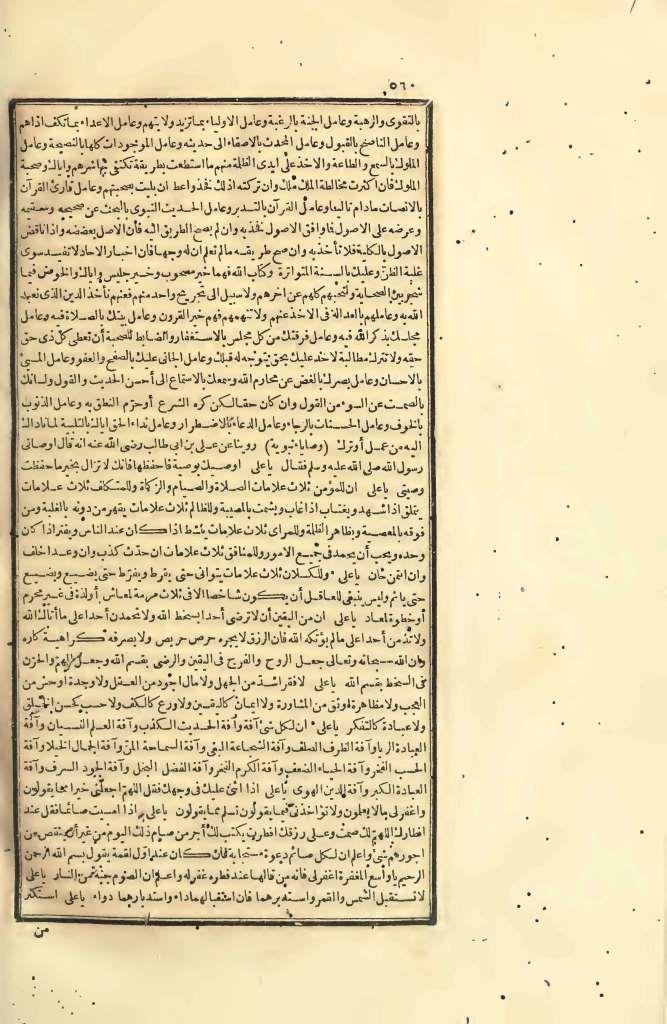 ٥٦٠
بالتقوى والرهبة وعامل الجنة بالرغبة وعامل الاولياء بما تزيد ولايتهم وعامل الاعداء بما تكف اذاهم
وعامل الناصح بالقبول وعامل المحدث بالاصغاء الى حديثه وعامل الموجودات كلها بالنصيحة وعامل
الملوك بالسمع والطاعة والاخذ على ايدى الظلمة منهم ما استطعت بطريقة تكتفى بها شرهم واياك وصحبة
الملوك فان اكثرت مخالطة الملك ملك وان تركته اذلك فخذ واعط ان بليت بصحبتهم وعامل قارئ القرآن
بالانصات مادام تاليا وعامل القرآن بالتدبر وعامل الحديث النبوى بالبحث عن صحيحه وسقيمه
وعرضه على الاصول فما وافق الاصول فخذ به وان لم يصح الطريق اليه فان الاصل يعضده واذا ناقض
الاصول بالكلية فلا تأخذ به وان صح طريقه مالم تعلم ان له وجها فان اخبار الآحاد لا تفيد سوى
غلبة الظن وعليك بالسنة المتواترة وكتاب الله فهما خير مصحوب وخير جليس واياك والخوض فيما
شجر بين الصحابة ولتحبهم كلهم عن آخرهم ولا سبيل الى تجريح واحد منهم فعنهم نأخذ الدين الذى نعبد
الله به وعاملهم بالعدالة فى الاخذ عنهم ولا تتهمهم فهم خير القرون وعامل بيتك بالصلاة فيه وعامل
مجلسك بذكر الله فيه وعامل فرقتك من كل مجلس بالاستغفار والضابط للصحبة أن تعطى كل ذى حق
حقه ولا تترك مطالبة لاحد عليك بحق يتوجه له قبلك وعامل الجانى عليك بالصفح والعفو وعامل المسئ
بالاحسان وعامل بصرك بالغض عن محارم الله وسمعك بالاستماع الى أحسن الحديث والقول ولسانك
بالصمت عن السوء من القول وان كان حقا لكن كره الشرع أو حرم النطق به وعامل الذنوب
بالخوف وعامل الحسنات بالرجاء وعامل الدعاء بالاضطرار وعامل نداء الحق اياك بالتلبية لما ناداك
اليه من عمل أو ترك (وصايا نبوية) روينا عن على بن ابى طالب رضى الله عنه انه قال اوصانى
رسول الله صلى الله عليه وسلم فقال ياعلى اوصيك بوصية فاحفظها فانك لا تزال بخير ما حفظت
وصيتى ياعلى ان للمؤمن ثلاث علامات الصلاة والصيام والزكاة وللمتكلف ثلاث علامات
يتملق اذا شهد ويغتاب اذا غاب ويشمت بالمصيبة وللظالم ثلاث علامات يقهر من دونه بالغلبة ومن
فوقه بالمعصية ويظاهر الظلمة وللمراى ثلاث علامات ينشط اذا كان عند الناس ويفتر اذا كان
وحده ويحب أن يحمد فى جميع الامور وللمنافق ثلاث علامات ان حدث كذب وان وعد اخلف
وان ائتمن خان ياعلى وللكسلان ثلاث علامات يتوانى حتى يفرط ويفرط حتى يضيع ويضيع
حتى يأثم وليس ينبغى للعاقل أن يكون شاخصا الا فى ثلاث مرمة لمعاش أو لذة فى غير محرم
أو خطوة لمعاد ياعلى ان من اليقين أن لا ترضى أحدا بسخط الله ولا تحمدن أحدا على ما آتاك الله
ولا تذمن أحدا على مالم يؤتكه الله فان الرزق لا يجره حرص حريص ولا يصرفه كراهية كاره
وان الله سبحانه وتعالى جعل الروح والفرج فى اليقين والرضى بقسم الله وجعل الهم والحزن
فى السخط بقسم الله ياعلى لا فقر اشد من الجهل ولا مال اجود من العقل ولا وحدة اوحش من
العجب ولا مظاهرة اوثق من المشاورة ولا ايمان كاليقين ولا ورع كالكف ولا حسب كحسن الخلق
ولا عبادة كالتفكر ياعلى ان لكل شئ آفة وآفة الحديث الكذب وآفة العلم النسيان وآفة
العبادة الريا وآفة الظرف الصلف وآفة الشجاعة البغى وآفة السماحة المن وآفة الجمال الخيلا وآفة
الحسب الفخر وآفة الحياء الضعف وآفة الكرم الفخر وآفة الفضل البخل وآفة الجود السرف وآفة
العبادة الكبر وآفة الدين الهوى ياعلى اذا اثنى عليك فى وجهك فقل اللهم اجعلنى خيرا مما يقولون
واغفر لى مالا يعلمون ولا تؤاخذنى فيما يقولون تسلم مما يقولون ياعلى اذا امسيت صائما فقل عند
افطارك اللهم لك صمت وعلى رزقك افطرت يكتب لك أجر من صام ذلك اليوم من غير أن ينقص من
اجورهم شئ واعلم ان لكل صائم دعوة مستجابة فان كان عند اول لقمة يقول بسم الله الرحمن
الرحيم يا واسع المغفرة اغفر لى فانه من قالها عند فطره غفر له واعلم ان الصوم جنة من النار ياعلى
لا تستقبل الشمس والقمر واستدبرهما فان استقبالهما داء واستدبارهما دواء ياعلى استكثر
من